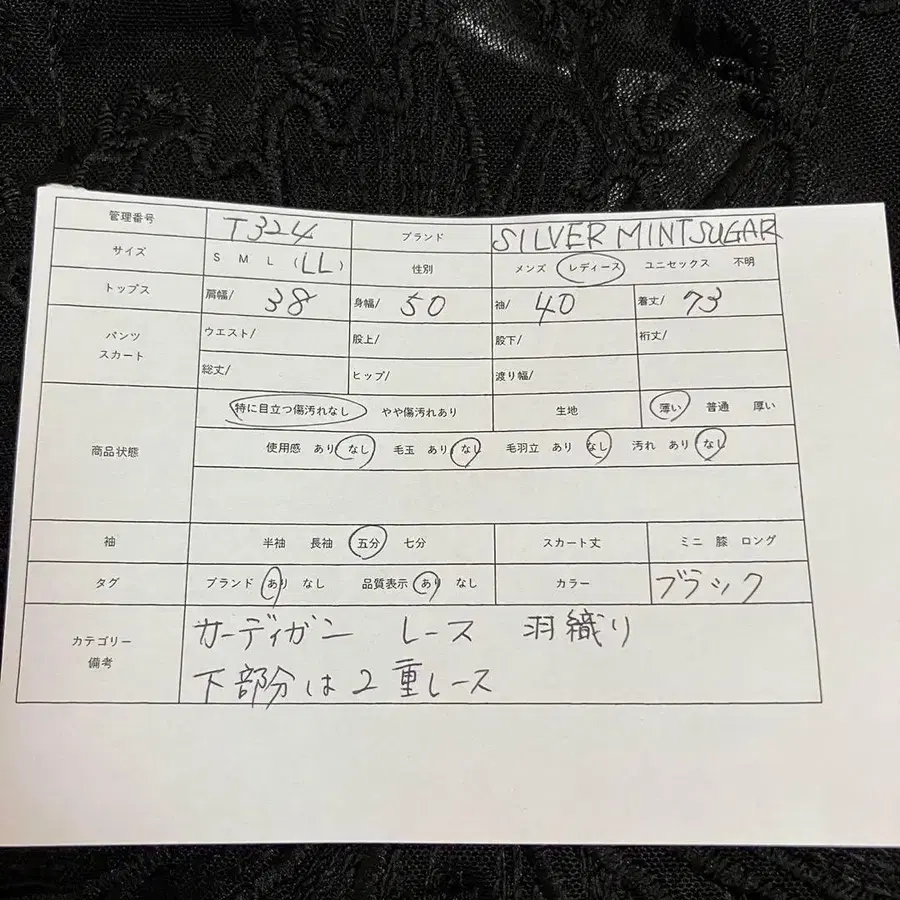 管理番号 T324 ブランド SILVER MINT SUGAR
サイズ S M L (LL) 性別 メンズ レディース ユニセックス 不明
トップス 肩幅/ 38 身幅/ 50 袖/ 40 着丈/ 73
パンツ スカート ウエスト/ 股上/ 股下/ 裄丈/
総丈/ ヒップ/ 渡り幅/
商品状態 特に目立つ傷汚れなし やや傷汚れあり 生地 薄い 普通 厚い
使用感 あり なし 毛玉 あり なし 毛羽立 あり なし 汚れ あり なし
袖 半袖 長袖 五分 七分 スカート丈 ミニ 膝 ロング
タグ ブランド あり なし 品質表示 あり なし カラー ブラック
カテゴリー 備考 カーディガン レース 羽織り
下部分は2重レース